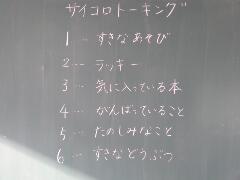 サイコロトーキング
1 … すきなあそび
2 … ラッキー
3 … 気に入っている本
4 … がんばっていること
5 … たのしみなこと
6 … すきなどうぶつ